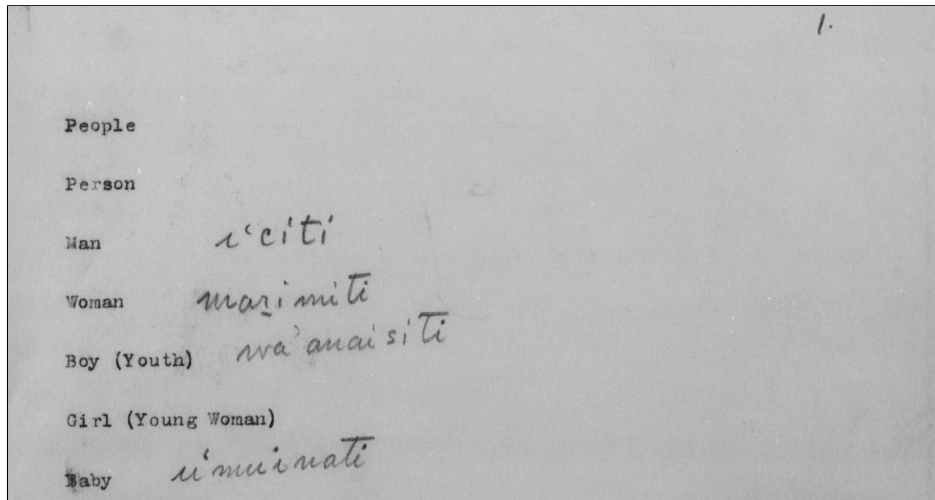 1.
People
Person
Man ı‘citi
Woman maẕimiti
Boy (Youth) wa'anaisiti
Girl (Young Woman)
Baby